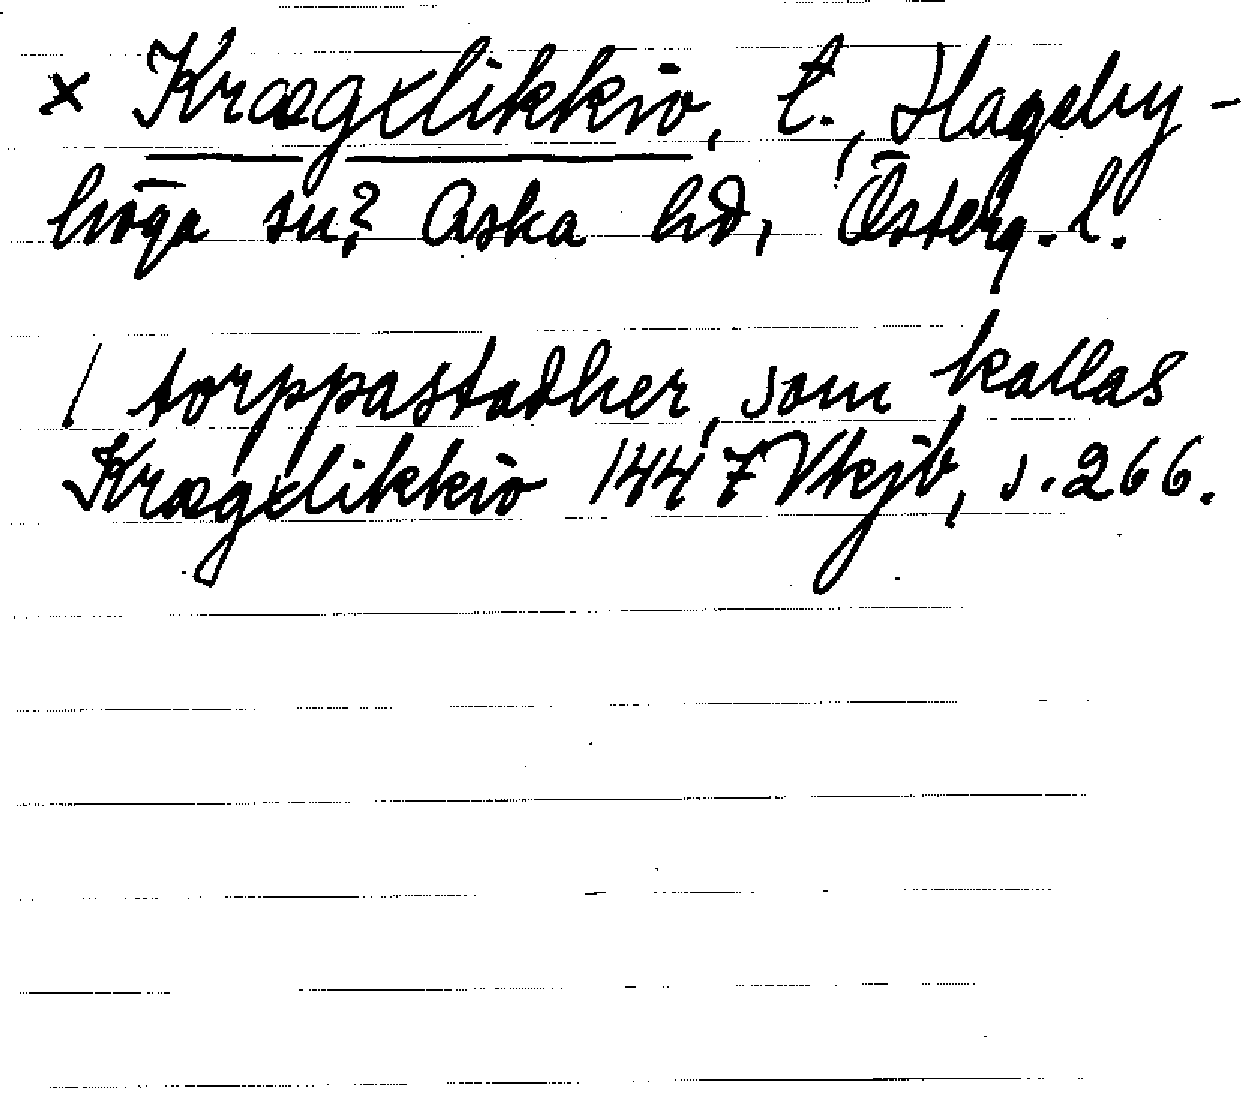 × Krægxlikkiö, t., Hageby-
höga sn? Aska hd, Österg. l.
1 torppastadher, som kallas
Krægxlikkiö 1447 Vkjb, s. 266.